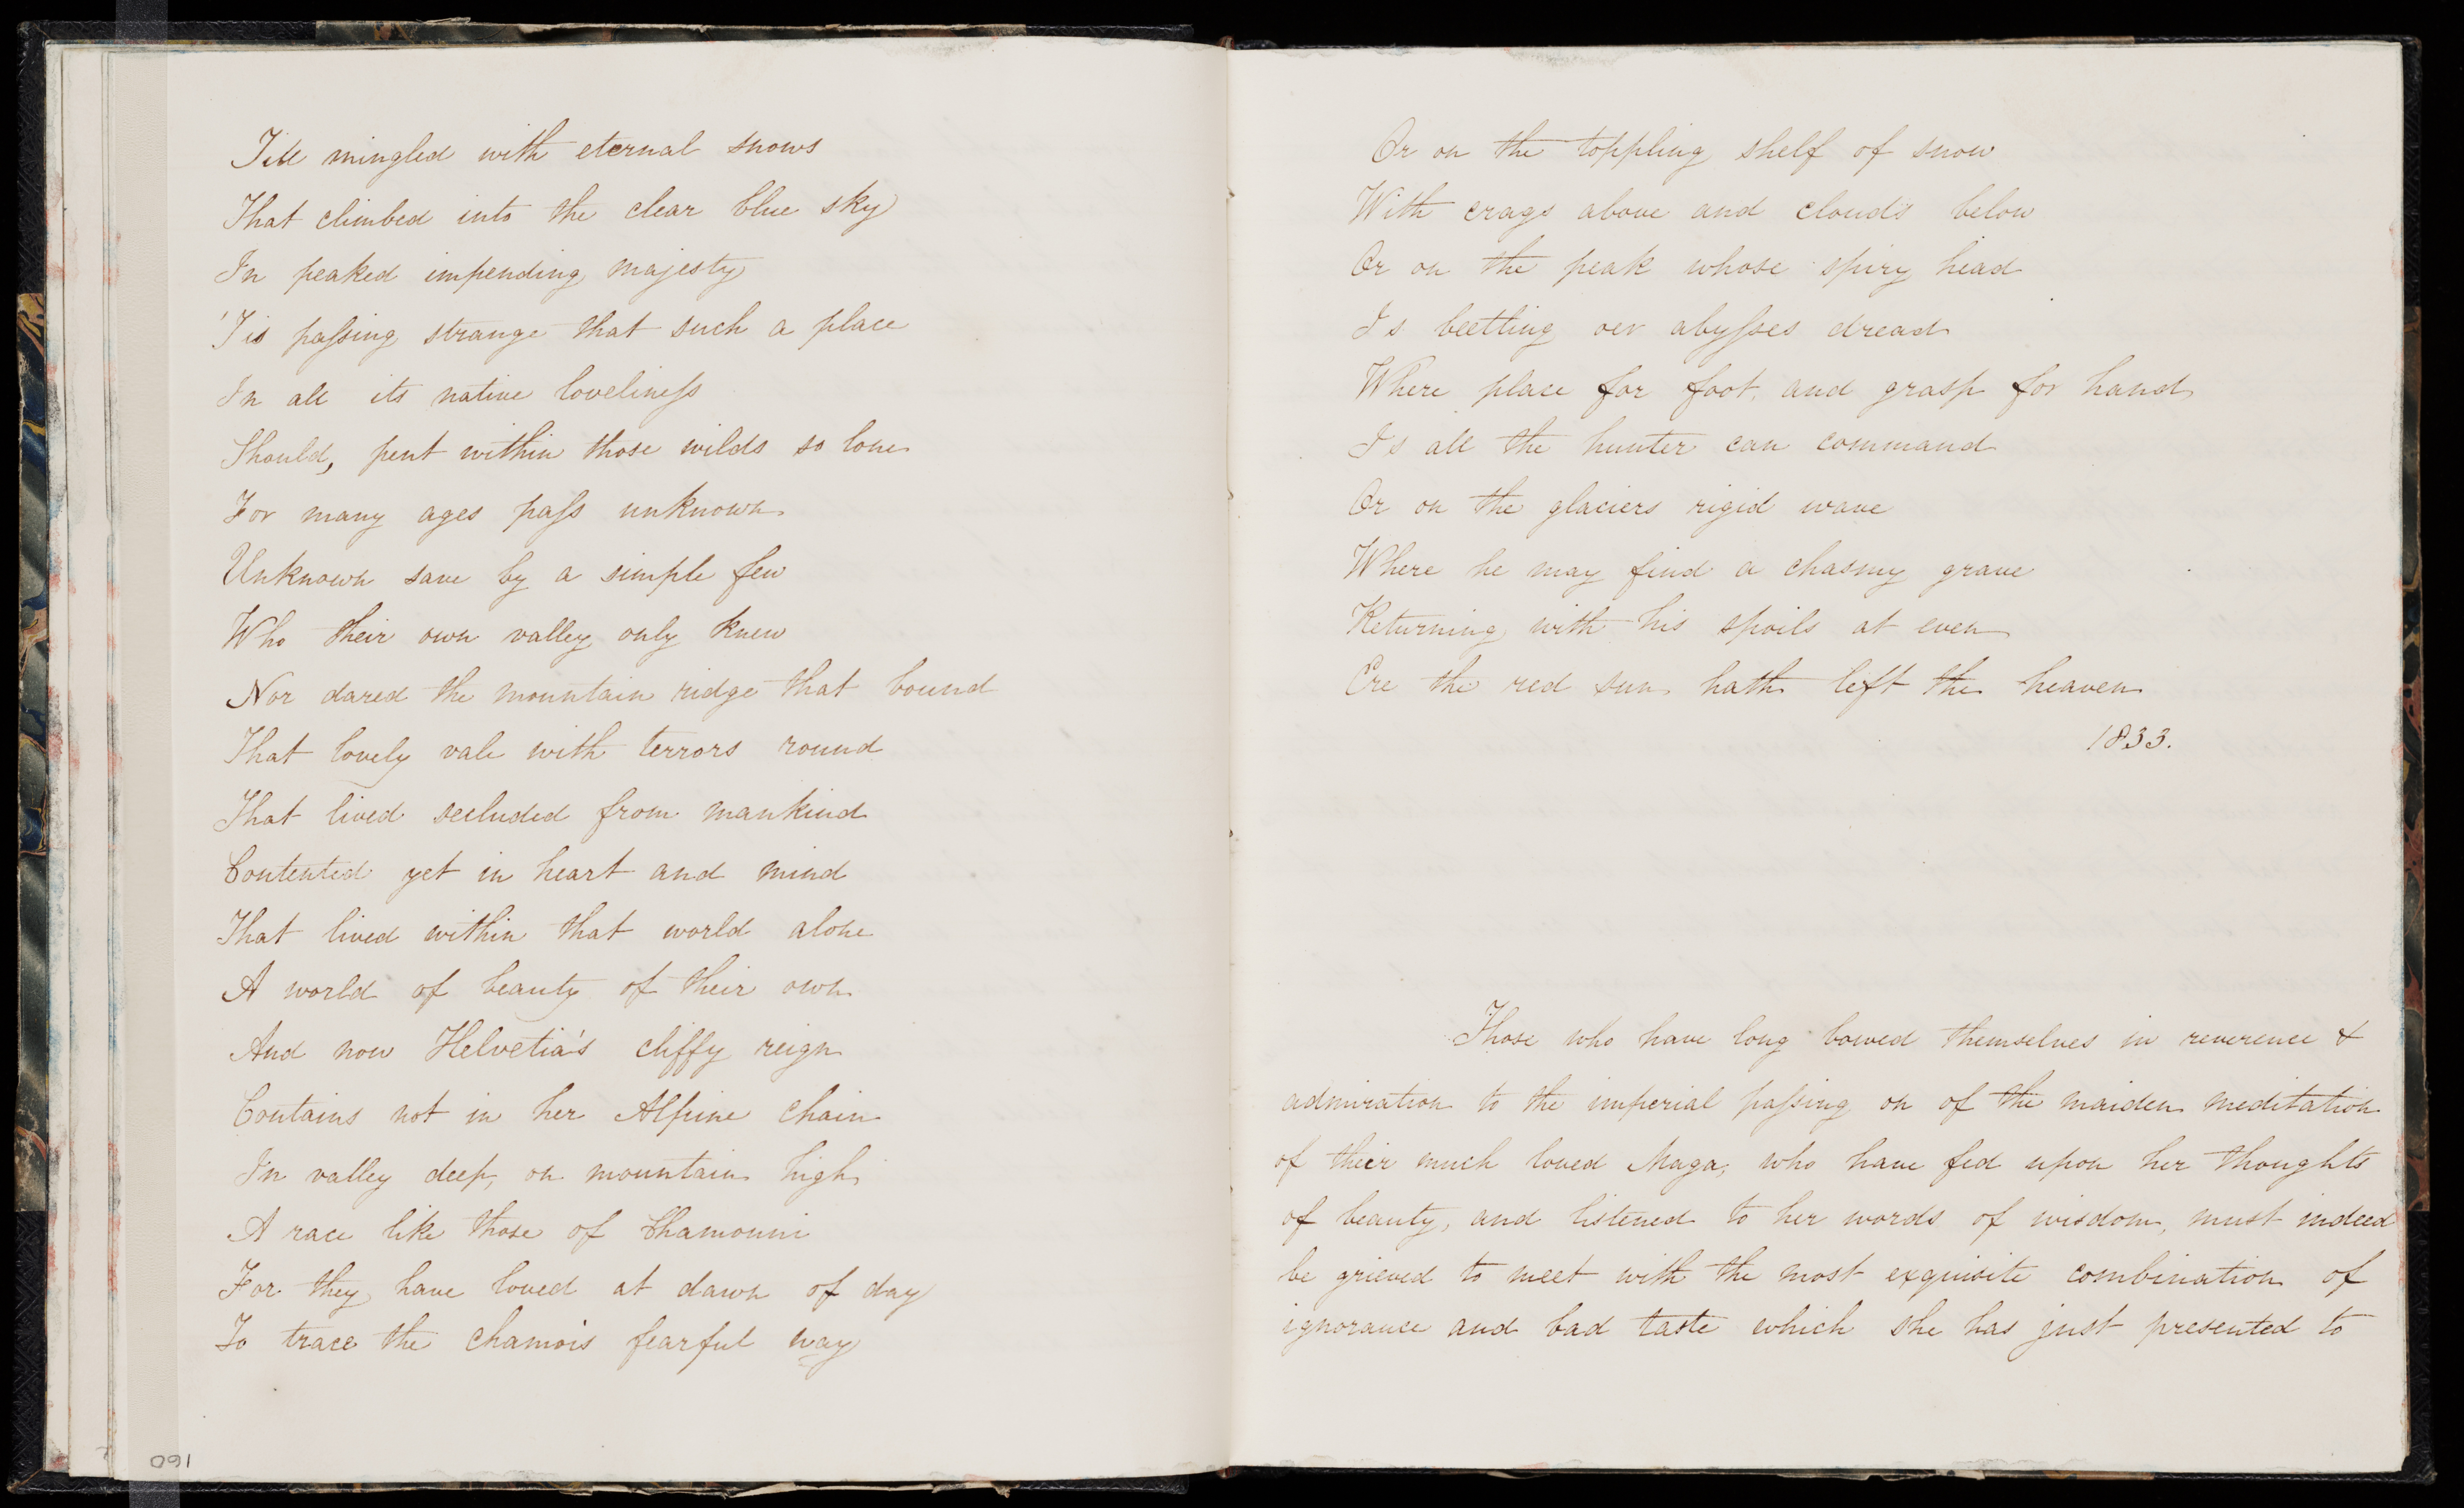 Till mingled with eternal snows
That climbed into the clear blue sky
In peaked impending majesty
'Tis paſsing strange that such a place
In all its native lovelineſs
Should, pent within those wilds so lone
For many ages paſs unknown.
Unknown save by a simple few
Who their own valley only knew
Nor dared the mountain ridge that bound
That lovely vale with terrors round
That lived secluded from mankind
Contented yet in heart and mind
That lived within that world alone
A world of beauty of their own.
And now Helvetia's cliffy reign
Contains not in her Alpine chain
In valley deep, on mountain high
A race like those of Chamouni
For they have loved at dawn of day
To trace the chamois fearful way
160
Or on the toppling shelf of snow
With crags above and clouds below
Or on the peak whose spiry head
Is beetling oer abyſses dread
Where place for foot, and grasp for hand
Is all the hunter can command
Or on the glaciers rigid wave
Where he may find a chasmy grave
Returning with his spoils at even
Ere the red sun hath left the heaven
1833.
Those who have long bowed themselves in reverence &
admiration to the imperial paſsing on of the maiden meditation
of thier much loved Maga, who have fed upon her thoughts
of beauty, and listened to her words of wisdom, must indeed
be grieved to meet with the most exquisite combination of
ignorance and bad taste which she has just presented to